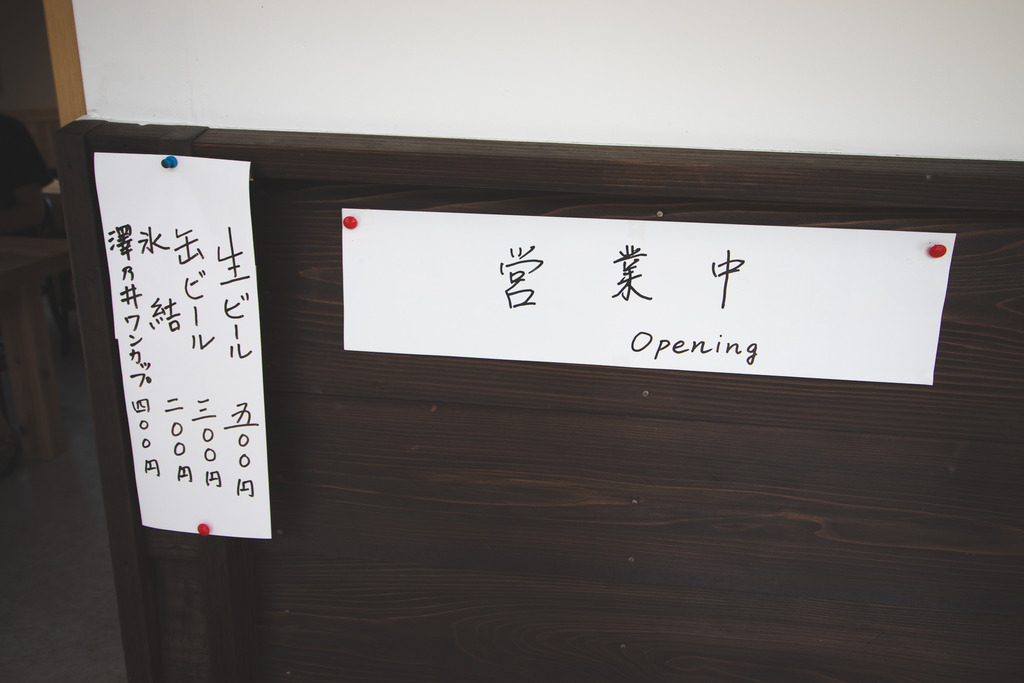 生ビール 五〇〇円
缶ビール 三〇〇円
氷結 二〇〇円
澤乃井ワンカップ 四〇〇円
営業中
Opening